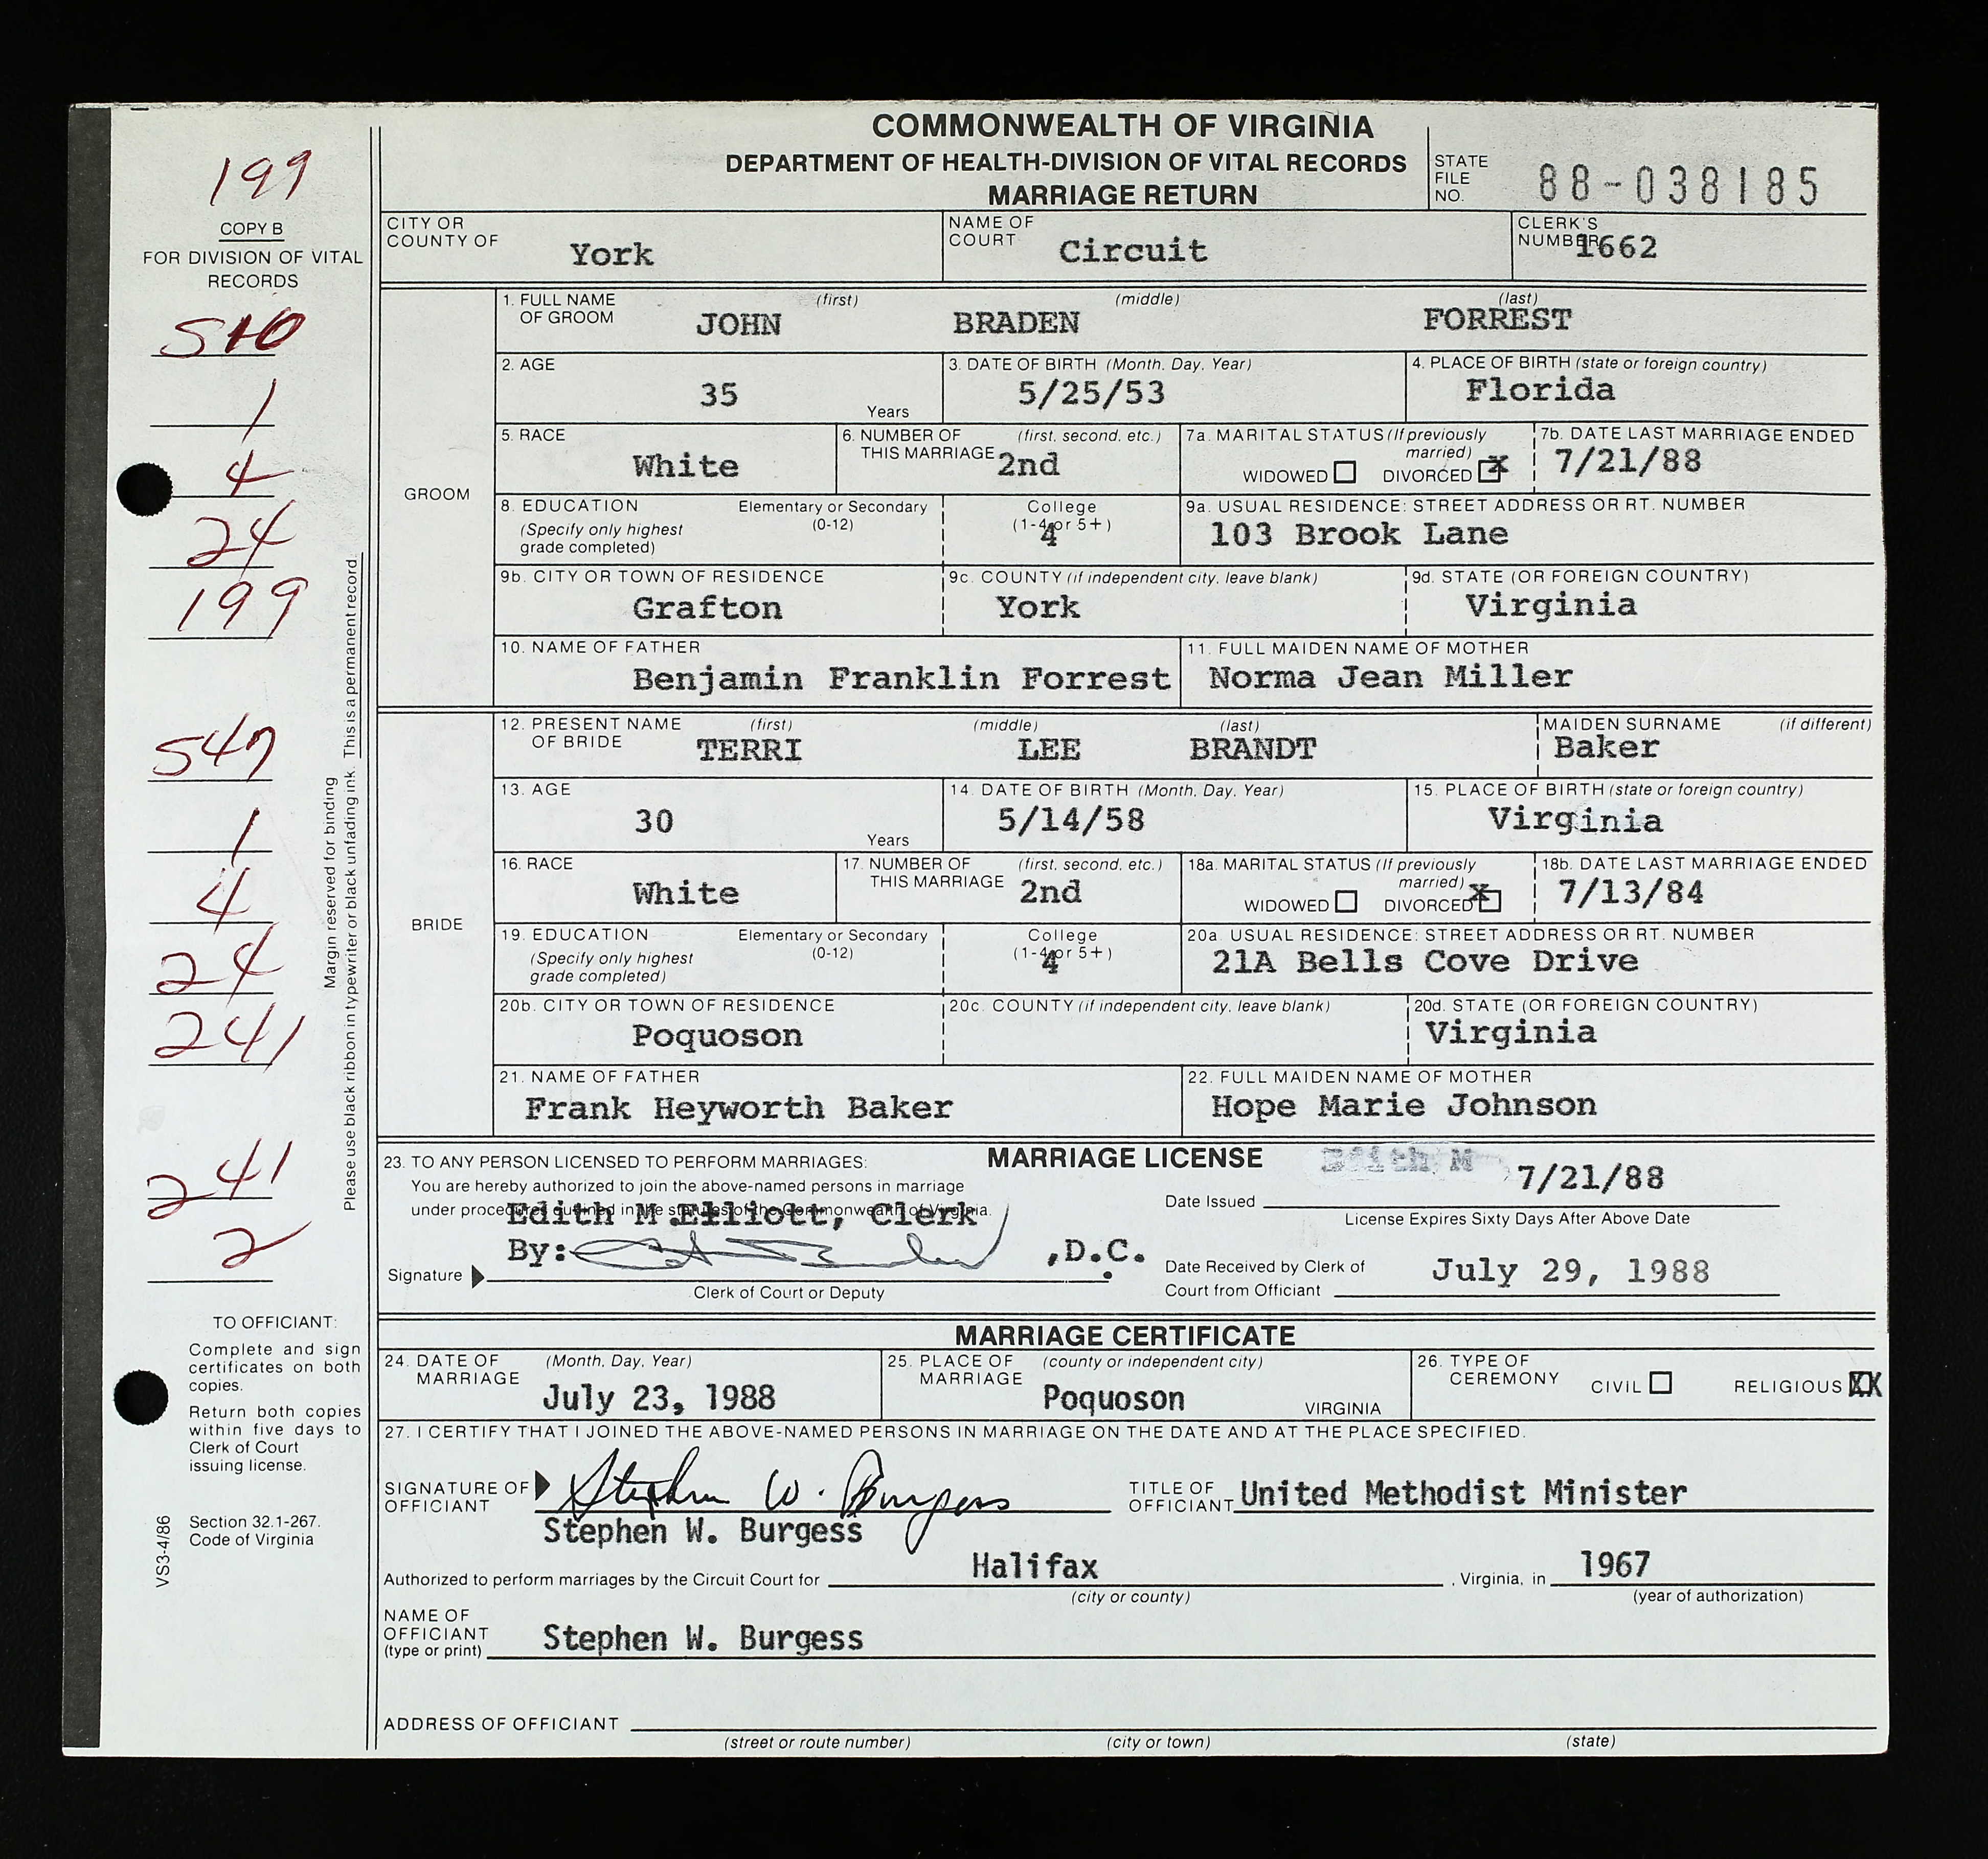 COMMONWEALTH OF VIRGINIA
DEPARTMENT OF HEALTH-DIVISION OF VITAL RECORDS
MARRIAGE RETURN
STATE FILE NO. 88-038185
199
COPY B
FOR DIVISION OF VITAL RECORDS
510
1
4
24
199
547
1
4
24
241
241
2
Margin reserved for binding
Please use black ribbon in typewriter or black unfading ink. This is a permanent record.
TO OFFICIANT:
Complete and sign
certificates on both
copies.
Return both copies
within five days to
Clerk of Court
issuing license.
Section 32.1-267.
Code of Virginia
VS3-4/86
CITY OR COUNTY OF York
NAME OF COURT Circuit
CLERK'S NUMBER 1662
GROOM
1. FULL NAME OF GROOM (first) JOHN (middle) BRADEN (last) FORREST
2. AGE 35 Years
3. DATE OF BIRTH (Month, Day, Year) 5/25/53
4. PLACE OF BIRTH (state or foreign country) Florida
5. RACE White
6. NUMBER OF THIS MARRIAGE (first, second, etc.) 2nd
7a. MARITAL STATUS (If previously married) WIDOWED DIVORCED X
7b. DATE LAST MARRIAGE ENDED 7/21/88
8. EDUCATION (Specify only highest grade completed) Elementary or Secondary (0-12) College (1-4 or 5+) 4
9a. USUAL RESIDENCE: STREET ADDRESS OR RT. NUMBER 103 Brook Lane
9b. CITY OR TOWN OF RESIDENCE Grafton
9c. COUNTY (if independent city, leave blank) York
9d. STATE (OR FOREIGN COUNTRY) Virginia
10. NAME OF FATHER Benjamin Franklin Forrest
11. FULL MAIDEN NAME OF MOTHER Norma Jean Miller
BRIDE
12. PRESENT NAME OF BRIDE (first) TERRI (middle) LEE (last) BRANDT
MAIDEN SURNAME (if different) Baker
13. AGE 30 Years
14. DATE OF BIRTH (Month, Day, Year) 5/14/58
15. PLACE OF BIRTH (state or foreign country) Virginia
16. RACE White
17. NUMBER OF THIS MARRIAGE (first, second, etc.) 2nd
18a. MARITAL STATUS (If previously married) WIDOWED DIVORCED X
18b. DATE LAST MARRIAGE ENDED 7/13/84
19. EDUCATION (Specify only highest grade completed) Elementary or Secondary (0-12) College (1-4 or 5+) 4
20a. USUAL RESIDENCE: STREET ADDRESS OR RT. NUMBER 21A Bells Cove Drive
20b. CITY OR TOWN OF RESIDENCE Poquoson
20c. COUNTY (if independent city, leave blank)
20d. STATE (OR FOREIGN COUNTRY) Virginia
21. NAME OF FATHER Frank Heyworth Baker
22. FULL MAIDEN NAME OF MOTHER Hope Marie Johnson
MARRIAGE LICENSE
23. TO ANY PERSON LICENSED TO PERFORM MARRIAGES:
You are hereby authorized to join the above-named persons in marriage
under procedures outlined in the statutes of the Commonwealth of Virginia.
Edith M. Elliott, Clerk
By: ,D.C.
Signature
Clerk of Court or Deputy
Edith M
Date Issued 7/21/88
License Expires Sixty Days After Above Date
Date Received by Clerk of Court from Officiant July 29, 1988
MARRIAGE CERTIFICATE
24. DATE OF MARRIAGE (Month, Day, Year) July 23, 1988
25. PLACE OF MARRIAGE (county or independent city) Poquoson VIRGINIA
26. TYPE OF CEREMONY CIVIL RELIGIOUS XX
27. I CERTIFY THAT I JOINED THE ABOVE-NAMED PERSONS IN MARRIAGE ON THE DATE AND AT THE PLACE SPECIFIED.
SIGNATURE OF OFFICIANT Stephen W. Burgess
TITLE OF OFFICIANT United Methodist Minister
Stephen W. Burgess
Authorized to perform marriages by the Circuit Court for Halifax (city or county), Virginia, in 1967 (year of authorization)
NAME OF OFFICIANT (type or print) Stephen W. Burgess
ADDRESS OF OFFICIANT
(street or route number) (city or town) (state)